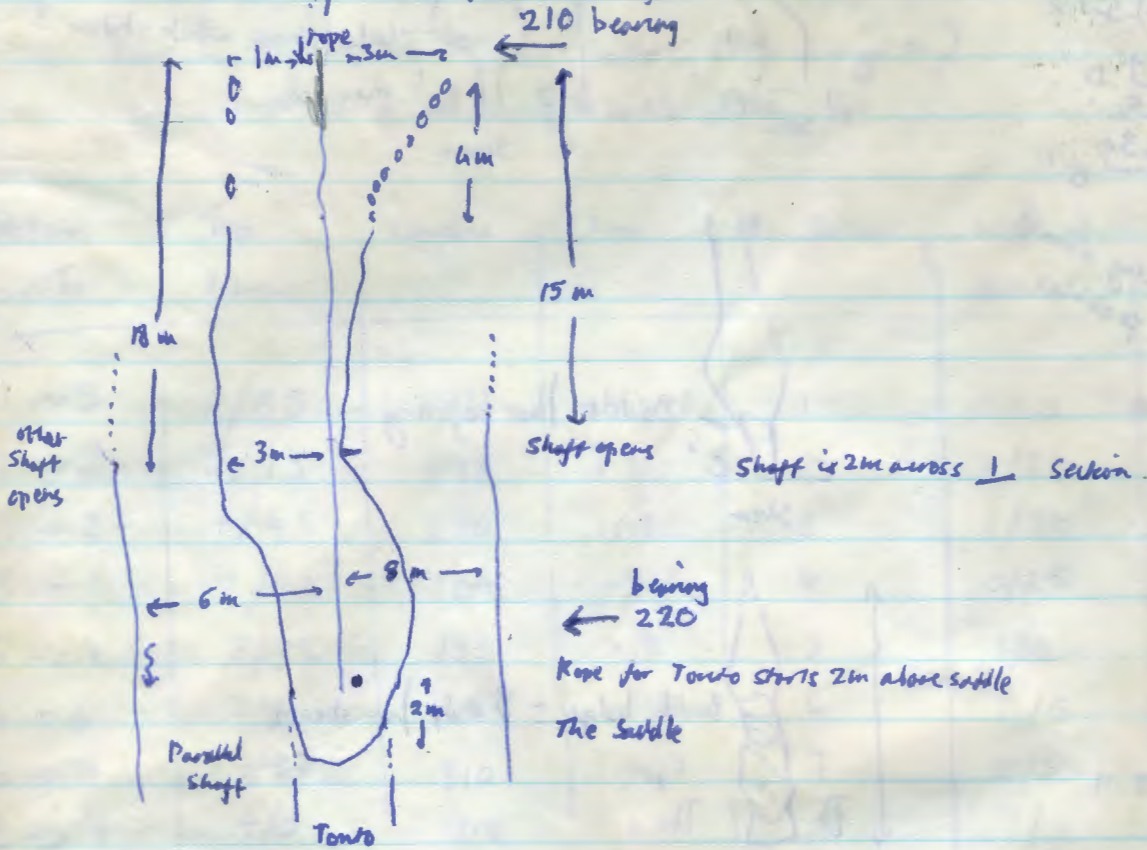 210 bearing
rope
1m 3m
4m
15m
18m
other
shaft
opens
3m
Shaft opens
Shaft is 2m across ⊥ section
8m
6m
bearing
220
Rope for Tonto starts 2m above saddle
2m
The Saddle
Parallel
Shaft
Tonto